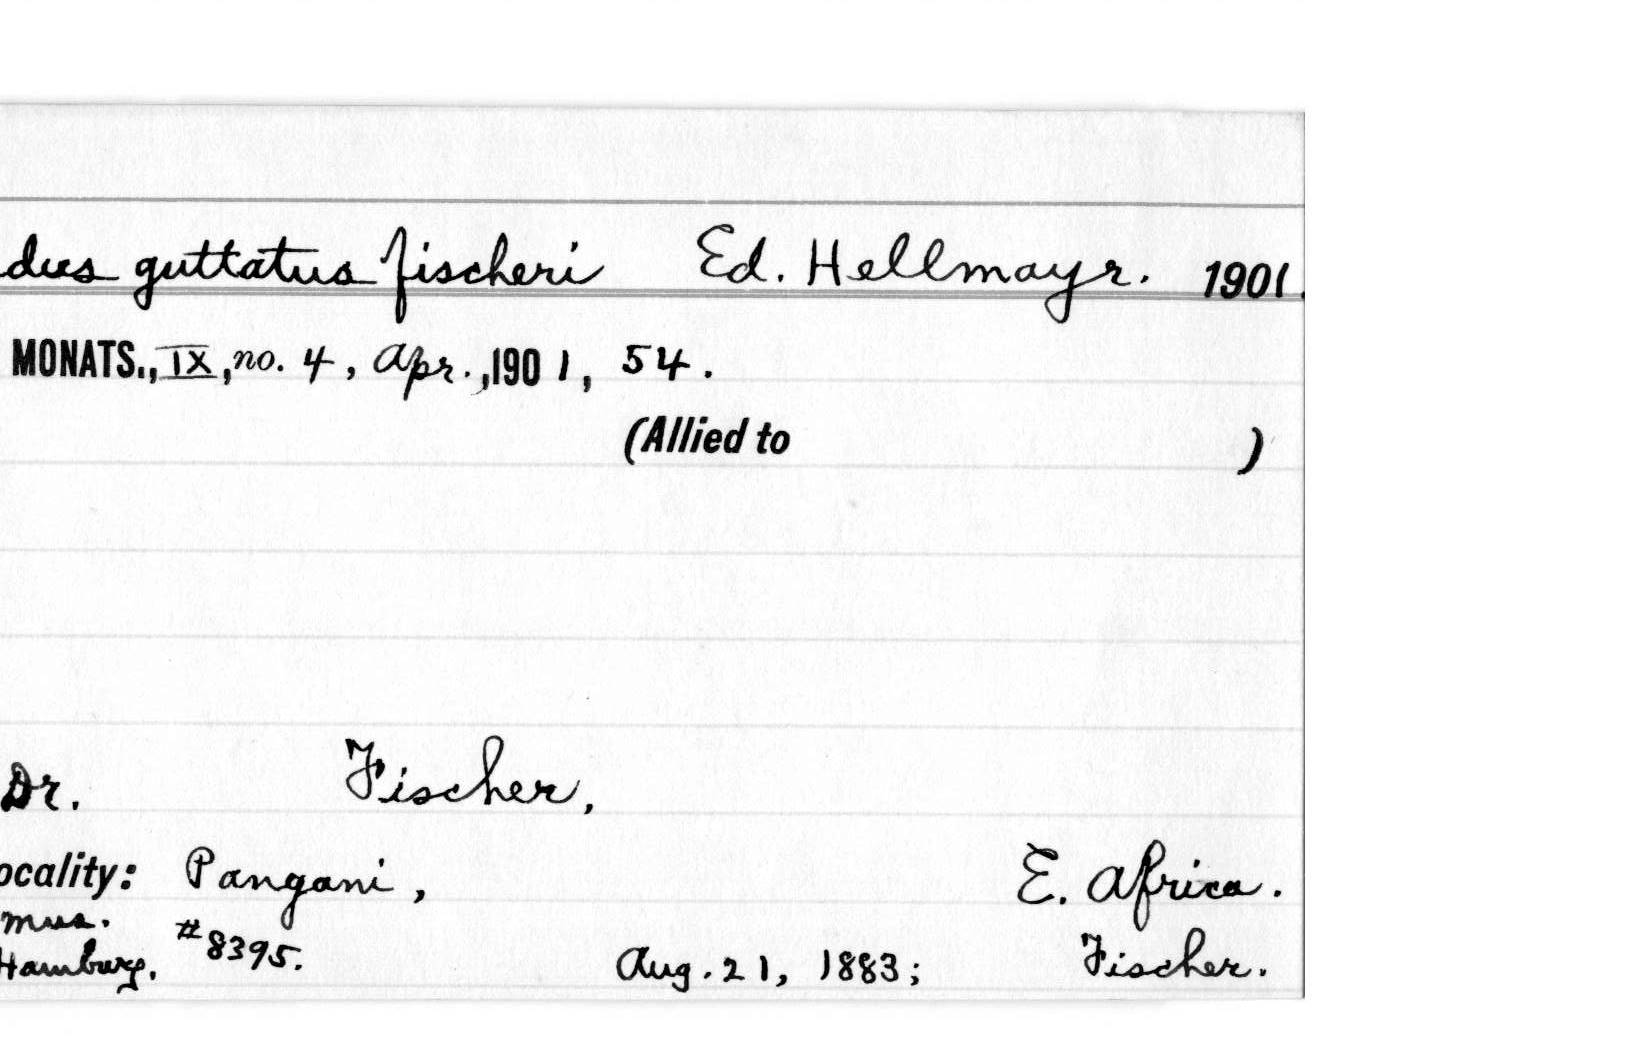 dus guttatus fischeri Ed. Hellmayr. 1901.
MONATS., IX, no. 4, Apr., 1901, 54.
(Allied to )
Dr. Fischer,
ocality: Pangani, E. Africa.
Mus. Hamburg. #8395. Aug. 21, 1883; Fischer.